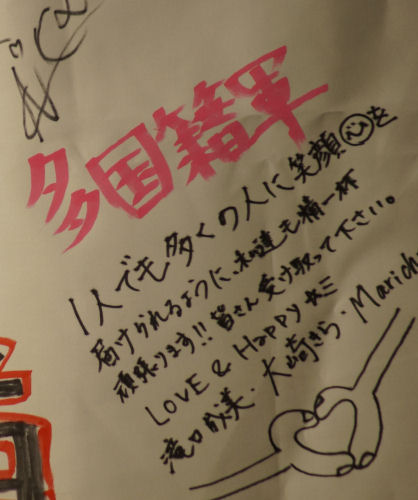 多国籍軍
1人でも多くの人に笑顔心を
届けられるように、私達も精一杯
頑張ります!!皆さん受け取って下さい。
LOVE & Happy ☆彡
滝口成美・大崎きら・Marich